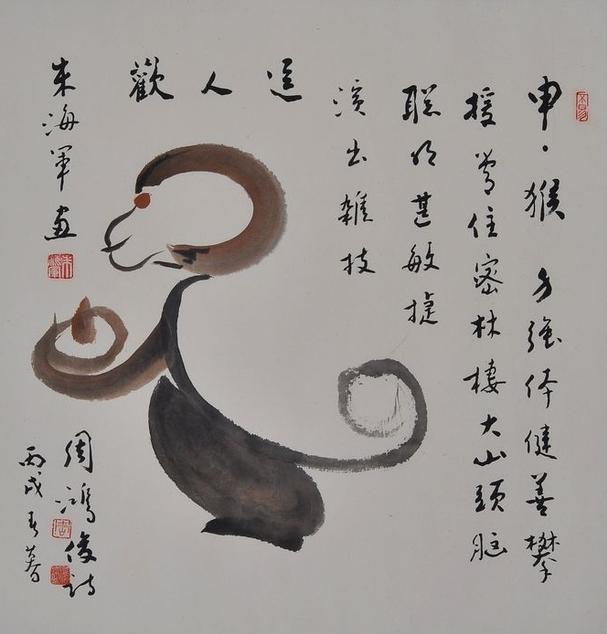 申·猴 力强体健善攀
援常住密林棲大山頭脑
聪明甚敏捷
演出雜技
逗
人
歡
朱海軍画
周鴻俊詩
丙戌春暮